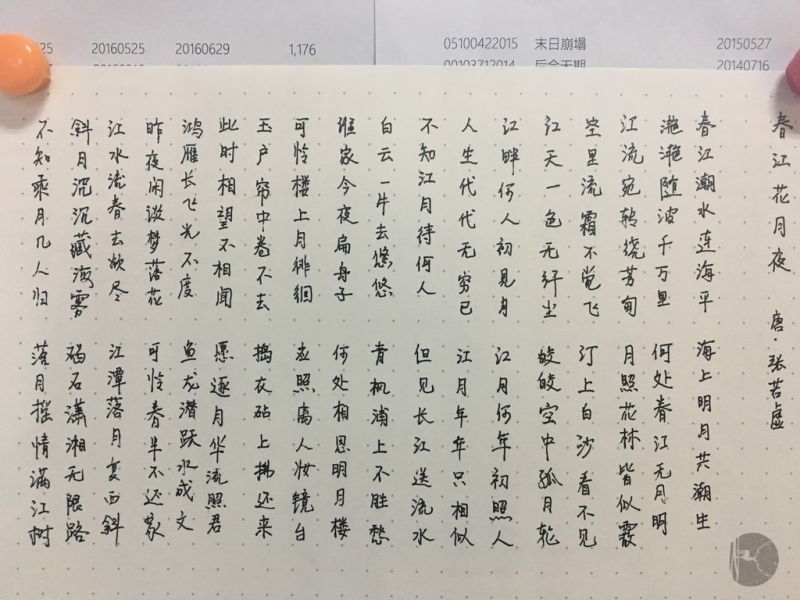 20160525 20160629 1,176
05100422015 末日崩塌 20150527
00103712014 后会无期 20140716
春江花月夜 唐·张若虚
春江潮水连海平 海上明月共潮生
滟滟随波千万里 何处春江无月明
江流宛转绕芳甸 月照花林皆似霰
空里流霜不觉飞 汀上白沙看不见
江天一色无纤尘 皎皎空中孤月轮
江畔何人初见月 江月何年初照人
人生代代无穷已 江月年年只相似
不知江月待何人 但见长江送流水
白云一片去悠悠 青枫浦上不胜愁
谁家今夜扁舟子 何处相思明月楼
可怜楼上月徘徊 应照离人妆镜台
玉户帘中卷不去 捣衣砧上拂还来
此时相望不相闻 愿逐月华流照君
鸿雁长飞光不度 鱼龙潜跃水成文
昨夜闲潭梦落花 可怜春半不还家
江水流春去欲尽 江潭落月复西斜
斜月沉沉藏海雾 碣石潇湘无限路
不知乘月几人归 落月摇情满江树